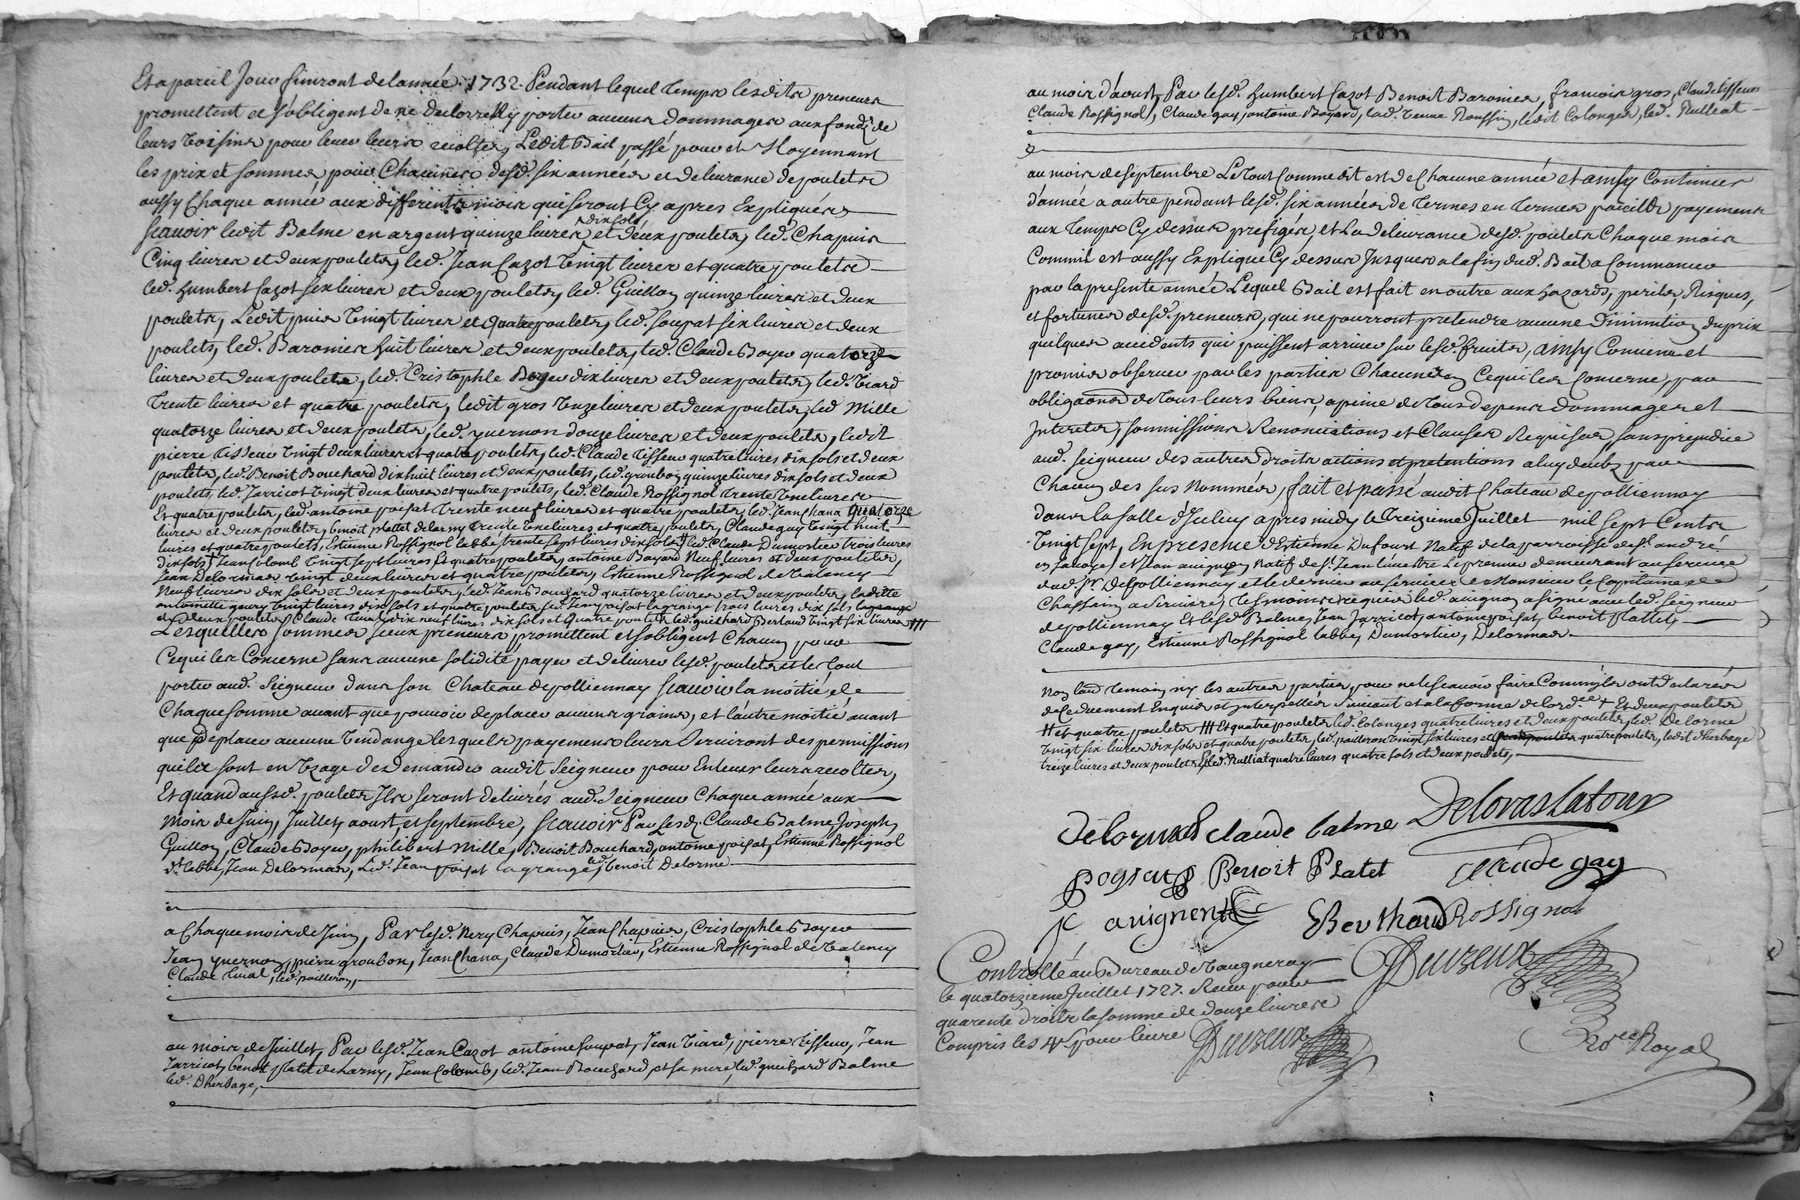 Et a pareil Jour finiront de l'année 1732. Pendant lequel temps lesdits preneurs
promettent et sobligent de ne porter aucuns dommages aux fonds de
leurs voisins pour lever leurs recoltes, Ledit Bail passé pour et Moyennant
les prix et sommes pour Chacunes desd. six années et delivrance de poulets
aussy Chaque année aux differents mois qui seront Cy apres Expliqués
scauoir ledit Balme en argent quinze livres dix sols et deux poulets, led. Chapuis
Cinq livres et deux poulets, led. Jean Cazot Vingt livres et quatre poulets
led. humbert Cazot six livres et deux poulets, led. Guillon quinze livres et deux
poulets, Ledit Vingt livres et quatre poulets, led. soupat six livres et deux
poulets, led. Baronier huit livres et deux poulets, led. Claude Boyer quatorze
livres et deux poulets, led. Cristophle Boyer dix livres et deux poulets, led. Viard
trente livres et quatre poulets, ledit gros Unze livres et deux poulets, led. Mille
quatorze livres et deux poulets, led. yvernon douze livres et deux poulets, ledit
pierre Tisseur Vingt deux livres et quatre poulets, led. Claude Tisseur quatre livres dix sols et deux
poulets, led. Benoit Bouchard dix huit livres et deux poulets, led. groubon quinze livres dix sols et deux
poulets, led. Jarricot Vingt deux livres et quatre poulets, led. Claude Rossignol trente Une livres
Et quatre poulets, led. antoine poisat trente neuf livres et quatre poulets, led. Jean Chana quatorze
livres et deux poulets, benoit plattet delarny trente Une livres et quatre poulets, Claude gay Vingt huit
livres et quatre poulets, Estienne Rossignol labbé trente sept livres dix sols, led. Claude Dumortier trois livres
dix sols † Jean Colomb Vingt sept livres Et quatre poulets, antoine Bayard Neuf livres et deux poulets,
Jean Delormas Vingt deux livres et quatre poulets, Estienne Rossignol de Valency
Neuf livres dix sols et deux poulets, led. Jean Bouchard quatorze livres et deux poulets, ladite
antoinette Vingt livres dix sols et quatre poulets, led. Jean poisat lagrange trois livres dix sols
et deux poulets, Claude dix neuf livres dix sols et quatre poulets, led. guichard Berlaud Vingt six livres ⧺
Lesquelles sommes iceux preneurs promettent et sobligent Chacun pour
Cequi les Concerne sans aucune solidité payer et delivrer lesd. poulets et le tout
porter aud. Seigneur dans son Chateau de pollienay scauoir la moitié de
Chaque somme avant que pouvoir deplacer aucuns grains, et l'autre moitié avant
que deplacer aucune Vendange lesquels payements leurs Serviront des permissions
quils sont en Usage de Demander audit Seigneur pour Enlever leurs recoltes,
Et quand auxd. poulets Ils seront delivrés aud. Seigneur Chaque année aux
Mois de Juin, Juillet, aoust, et septembre, scauoir Par Lesd. Claude Balme Joseph
Guillon, Claude Boyer, philibert Mille, Benoit Bouchard, antoine poisat, Estienne Rossignol
dt. labbé, Jean Delormas, Led. Jean poisat lagrange, led. benoit Delorme
a Chaque mois de Juin, Par lesd. Chapuis, Jean Chapuis, Cristophle Boyer
Jean yvernon, pierre groubon, Jean Chana, Claude Dumortier, Estienne Rossignol de Valency
Claude Vival, led. pailleron,
au mois de Juillet, Par lesd. Jean Cazot antoine soupat, Jean Viard, pierre Tisseur, Jean
Jarricot, benoit platet delarny, Jean Colomb, led. Jean Bouchard et sa mere, led. guichard Balme
led. Dherbage,
au mois d'aoust, Par lesd. humbert Cazot Benoit Baronier, francois gros, Claude Tisseur
Claude Rossignol, Claude gay, antoine Bayard, lad. Veuve Roussin, ledit Colonges, led. Rulliat
au mois de septembre Le tout Comme dit est de Chacune année et amsy Continuer
d'année a autre pendant lesd. six années de termes en termes pareills payements
aux temps Cy dessus préfigés, et La delivrance desd. poulets Chaque mois
Comme il est aussy Expliqué Cy dessus Jusques a la fin dud. Bail a Commencer
par la presente année Lequel Bail est fait en outre aux hazards, perils, Risques,
et fortunes desd. preneurs, qui ne pourront pretendre aucune Diminution du prix
quelques accidents qui puissent arriver sur lesd. fruits, amsy Convenu et
promis observer par les parties Chacunes en Cequi les Concerne, par
obligaons de tous leurs biens, a peine de tous depens dommages et
Interets, soumissions Renonciations et Clauses Requises sans prejudice
aud. seigneur des autres droits actions et pretentions a luy deubz par
Chacun des sus Nommés, fait et passé audit Chateau de pollienay
dans la salle d'Iceluy apres midy le treizieme Juillet mil sept Cents
Vingt sept, En presence d'Estienne Dufourt Natif de la parroisse de St. andré
en savoye, et Jean avignon Natif de St. Jean demeurant au service
dud. Sr. de pollienay et le dernier au service de Monsieur le Capitaine de
Chastain a tesmoins requis led. avignon a signé avec led. seigneur
de pollienay Et lesd. Balme, Jean Jarricot, antoine poisat, benoit Plattet,
Claude gay, Estienne Rossignol labbé, Dumortier, Delormas.
Non laud. temoin ny les autres parties pour ne le scavoir faire Comme ils ont declarés
de Ce duement Enquis et Interpellés Suivant et a la forme de lordce. † Et deux poulets
⧺ et quatre poulets ⧻ Et quatre poulets, led. Colonges quatre livres et deux poulets, led. Delorme
Vingt six livres dix sols et quatre poulets, led. pailleron Vingt six livres et quatre poulets, ledit dherbage
treize livres et deux poulets, led. Rulliat quatre livres quatre sols et deux poulets,
Delormas Claude balme Deloraslatour
poysat Benoit Platet claude gay
J avignon EBerthaud Rossignol
Controllé au Bureau de Vaugneray
le quatorzieme Juillet 1727. Receu pour
quarente droits la somme de douze livres
Compris les 4s pour livre Duvzeux
Duvzeux
Nore Royal